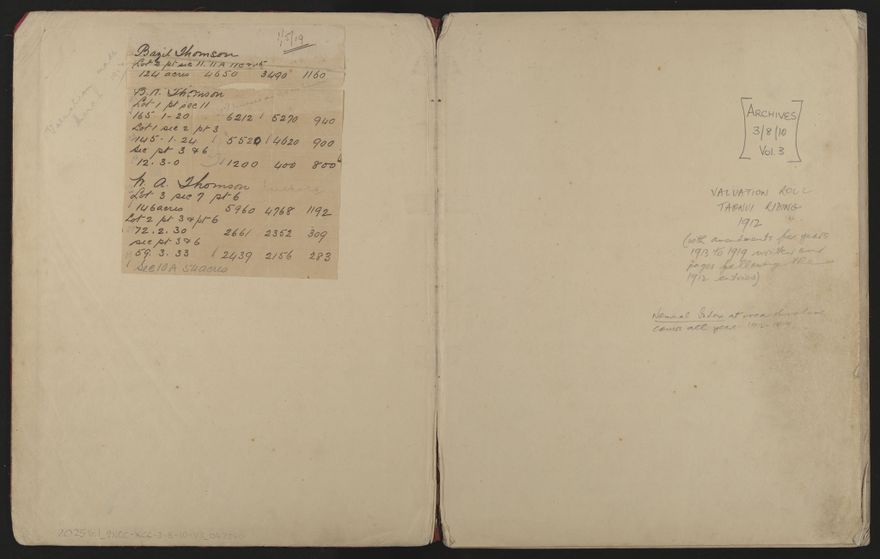 1/5/19
Bazil Thomson
Lot 2 pt sec 11. 11A 11C & 15
124 acres 4650 3490 1160
B.A. Thomson
Lot 1 pt sec 11
165-1-20 6212 5270 940
Lot 1 sec 2 pt 3
145-1-24 5520 4620 900
sec pt 3 & 6
12-3-0 1200 400 800
W. A. Thomson
Lot 3 sec 7 pt 6
146 acres 5960 4768 1192
Lot 2 pt 3 & pt 6
72.2.30 2661 2352 309
sec pt 3 & 6
59.3.33 2439 2156 283
Sec 10A 54 acres
Valuation made
ARCHIVES
3/8/10
Vol. 3
VALUATION ROLL
TAONUI RIDING
1912
(with amendments for years
1913 to 1919 written on
pages following the
1912 entries)
Nominal Index at rear
covers all years